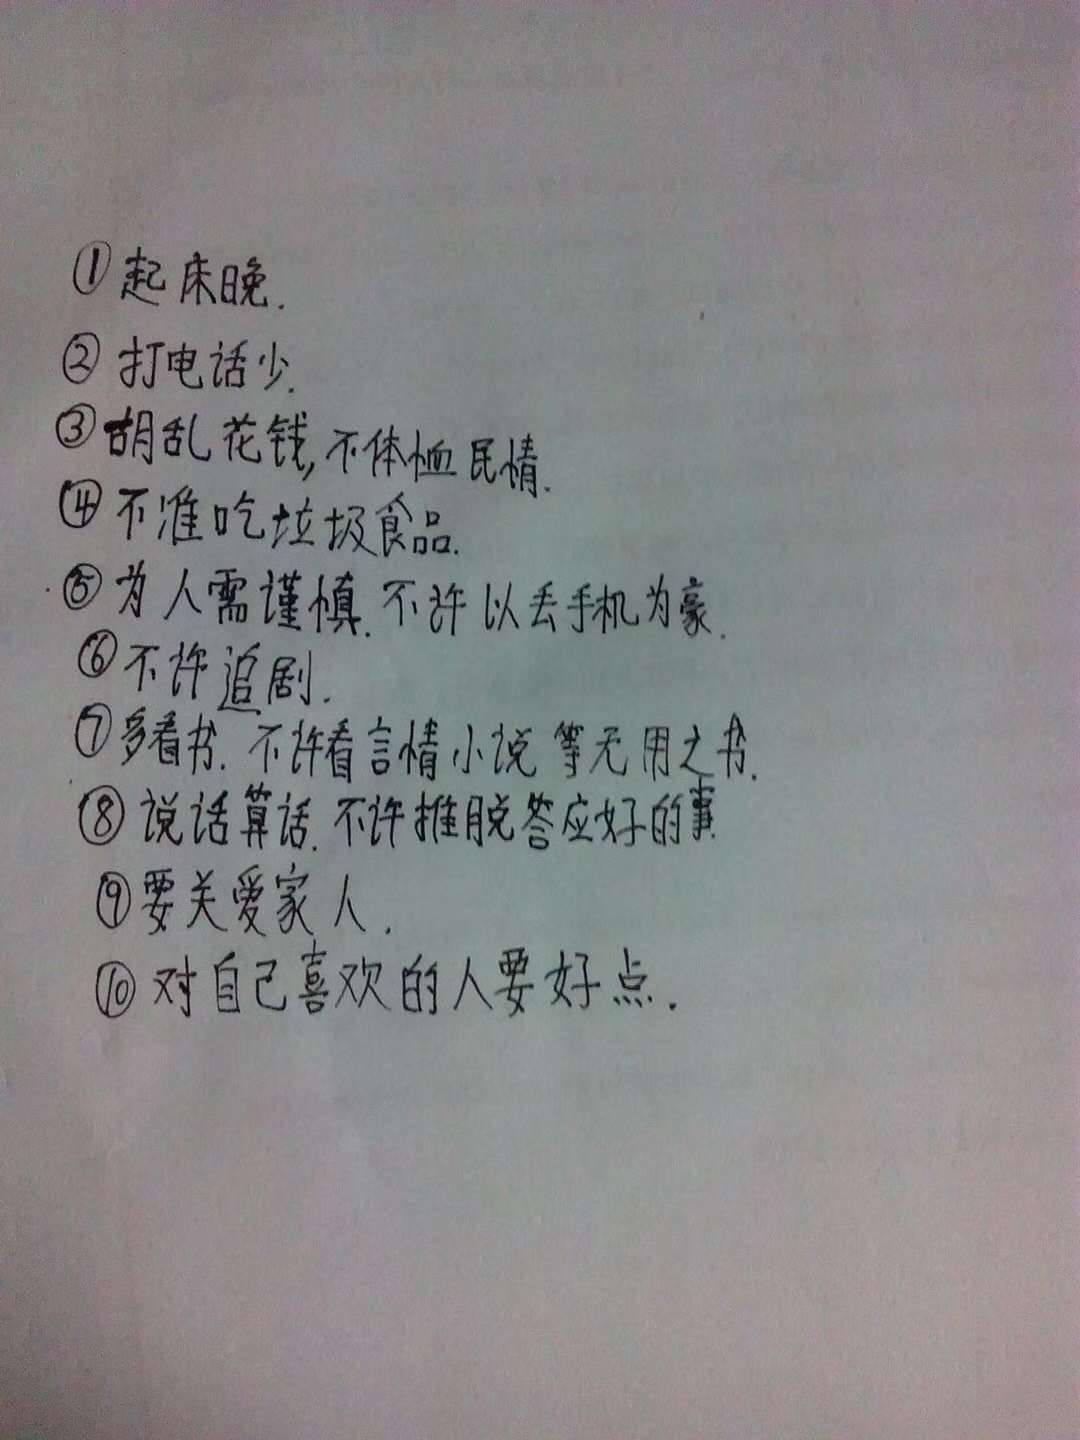 ①起床晚.
②打电话少.
③胡乱花钱,不体恤民情.
④不准吃垃圾食品.
⑤为人需谨慎.不许以丢手机为豪.
⑥不许追剧.
⑦多看书.不许看言情小说等无用之书.
⑧说话算话.不许推脱答应好的事
⑨要关爱家人.
⑩对自己喜欢的人要好点.